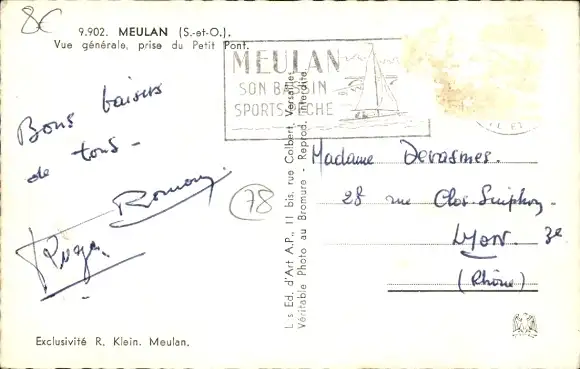 8€
9.902. MEULAN (S.-et-O.).
Vue générale, prise du Petit Pont.
MEULAN
SON BASSIN
SPORTS PÊCHE
Bons baisers
de tous -
Romany
Roger
78
Les Ed. d'Art A.P., 11 bis, rue Colbert, Versailles
Véritable Photo au Bromure - Reprod. Interdite
Madame Devasmes.
28 rue Clos-Suiphon -
Lyon. 3e
(Rhône)
Exclusivité R. Klein. Meulan.